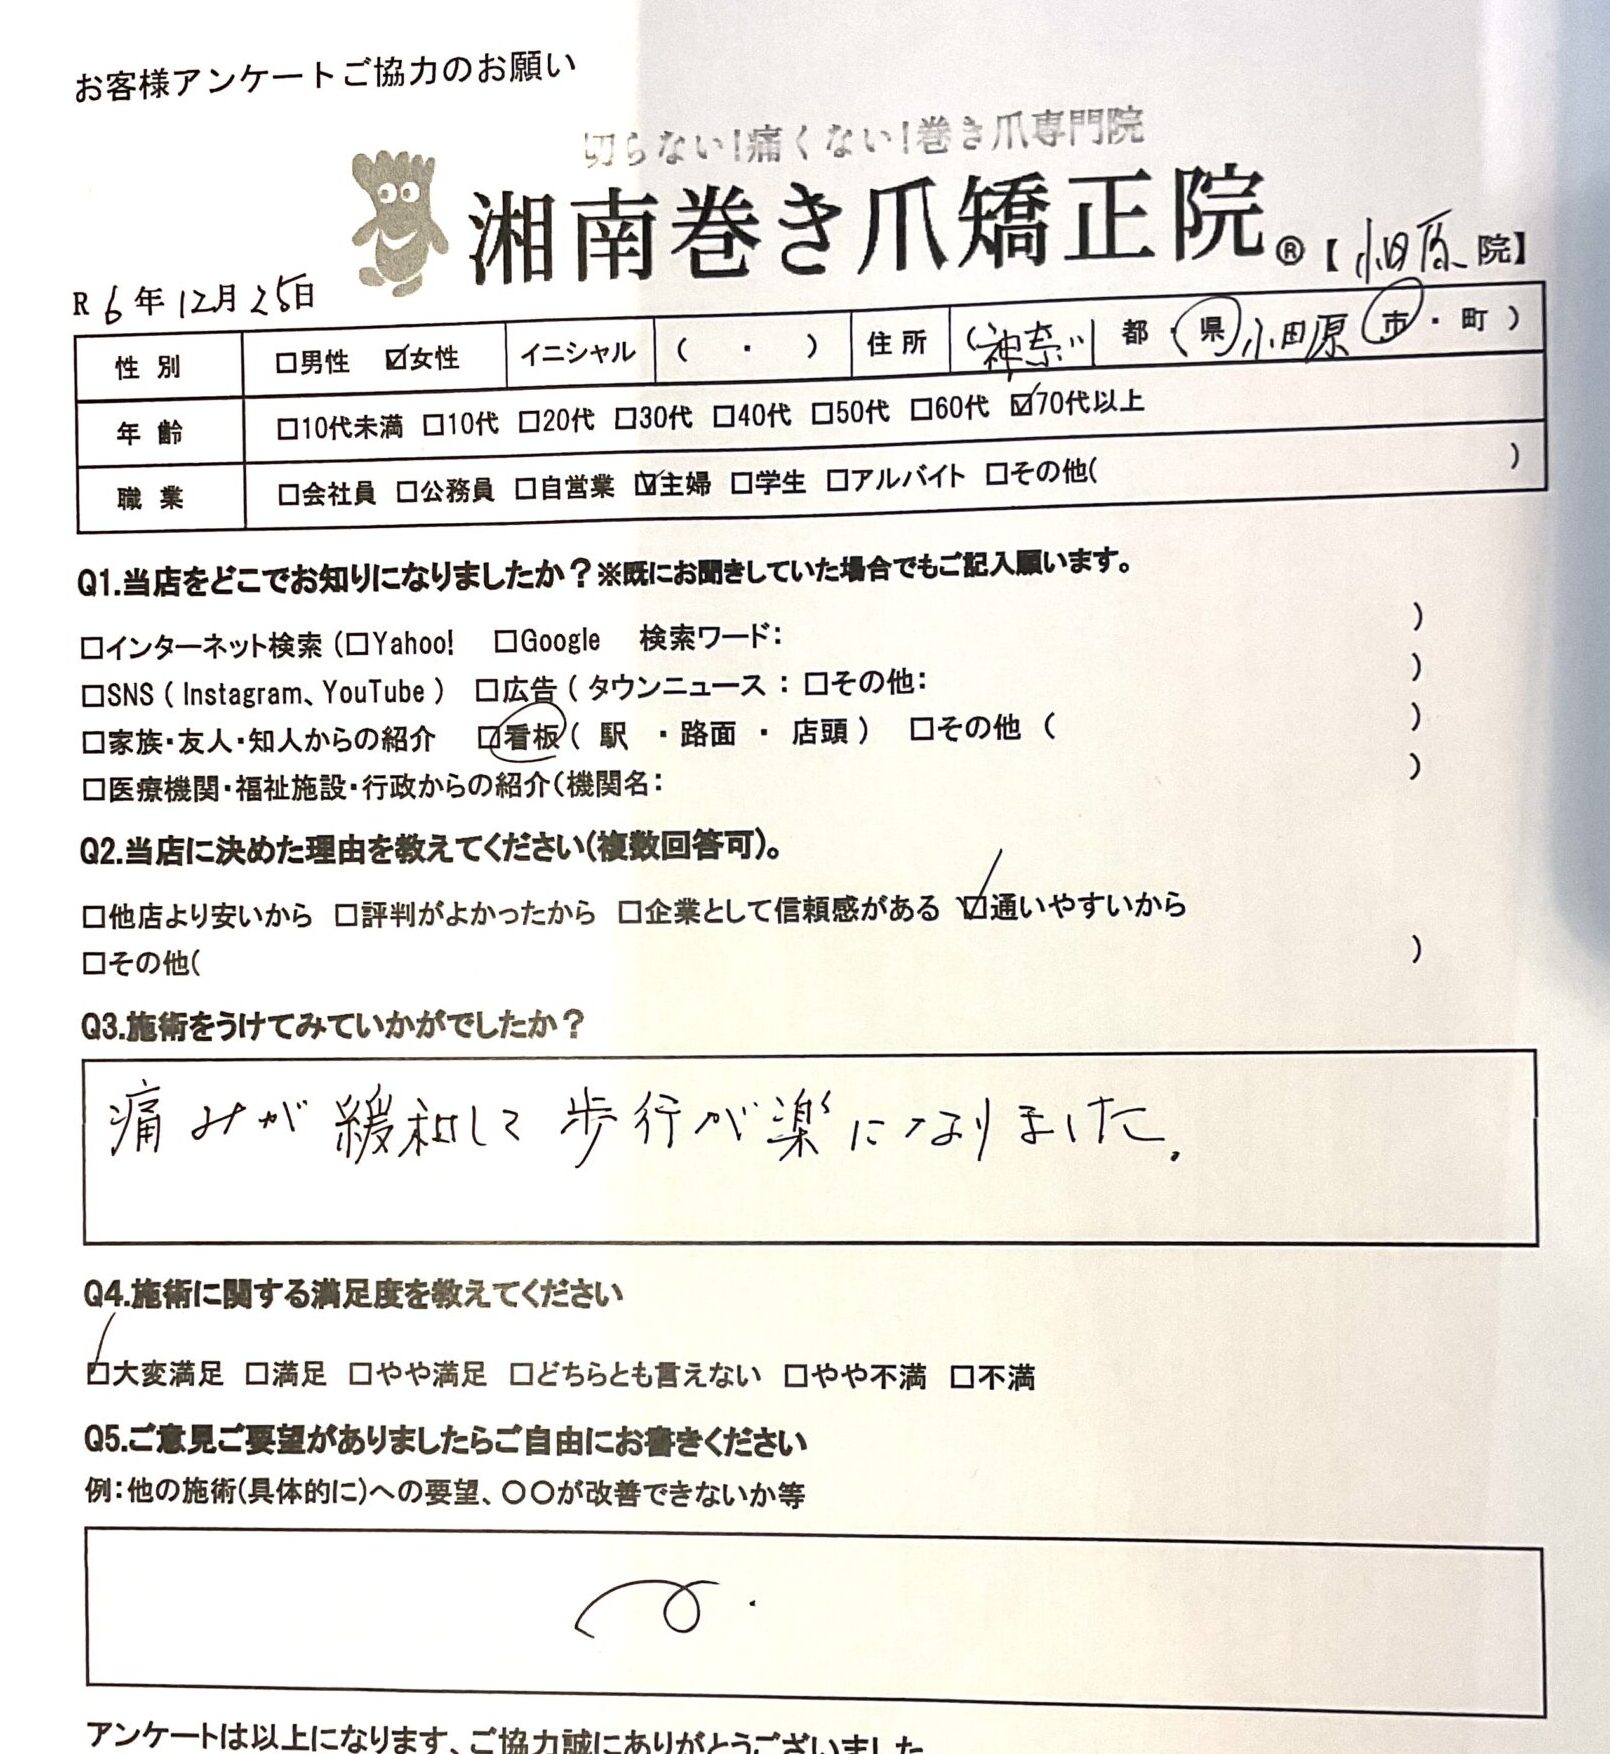 お客様アンケートご協力のお願い
切らない!痛くない!巻き爪専門院
湘南巻き爪矯正院®【小田原院】
R6年12月25日
性別 □男性 ☑女性 イニシャル ( ・ ) 住所 (神奈川 都・県 小田原 市・町)
年齢 □10代未満 □10代 □20代 □30代 □40代 □50代 □60代 ☑70代以上
職業 □会社員 □公務員 □自営業 ☑主婦 □学生 □アルバイト □その他( )
Q1.当店をどこでお知りになりましたか？※既にお聞きしていた場合でもご記入願います。
□インターネット検索 (□Yahoo! □Google 検索ワード: )
□SNS ( Instagram、YouTube ) □広告 ( タウンニュース : □その他: )
□家族・友人・知人からの紹介 ☑看板 ( 駅 ・路面 ・ 店頭 ) □その他 ( )
□医療機関・福祉施設・行政からの紹介(機関名: )
Q2.当店に決めた理由を教えてください(複数回答可)。
□他店より安いから □評判がよかったから □企業として信頼感がある ☑通いやすいから
□その他( )
Q3.施術をうけてみていかがでしたか？
痛みが緩和して歩行が楽になりました.
Q4.施術に関する満足度を教えてください
☑大変満足 □満足 □やや満足 □どちらとも言えない □やや不満 □不満
Q5.ご意見ご要望がありましたらご自由にお書きください
例:他の施術(具体的に)への要望、〇〇が改善できないか等
アンケートは以上になります、ご協力誠にありがとうございました